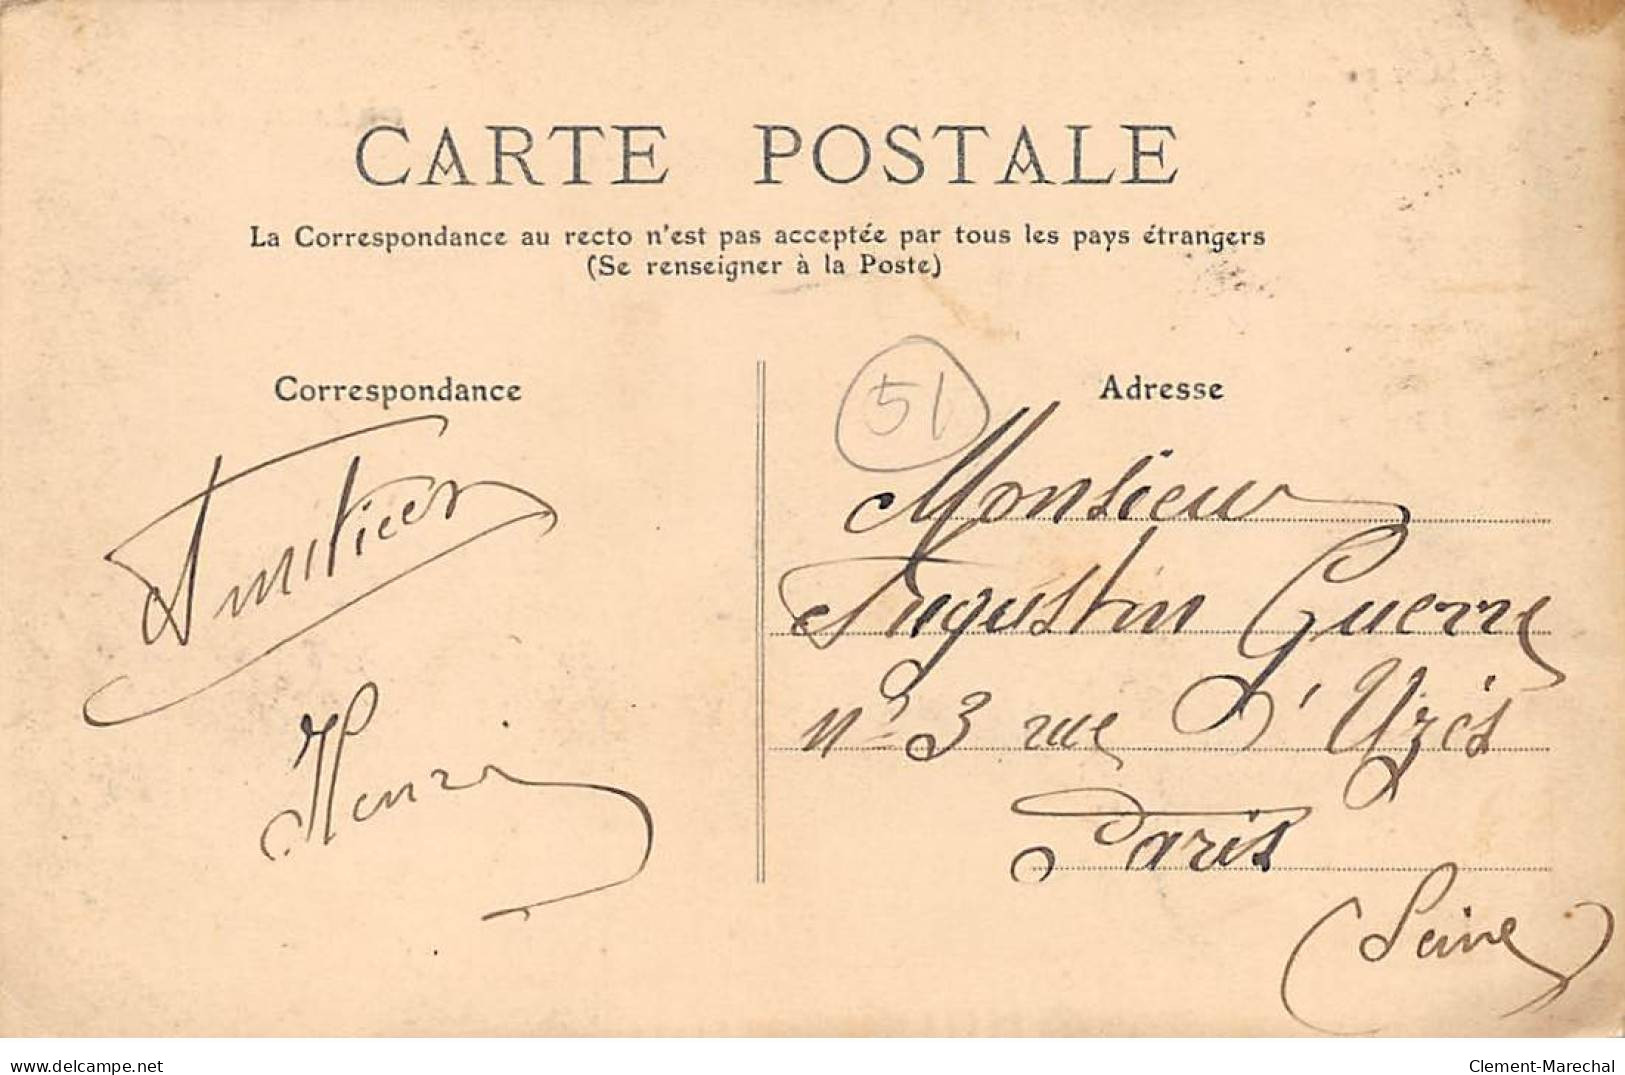 CARTE POSTALE
La Correspondance au recto n'est pas acceptée par tous les pays étrangers
(Se renseigner à la Poste)
Correspondance
Amitiés
Henri
51
Adresse
Monsieur
Augustin Guerre
n° 3 rue d'Uzès
Paris
(Seine)
www.delcampe.net
Clement-Marechal